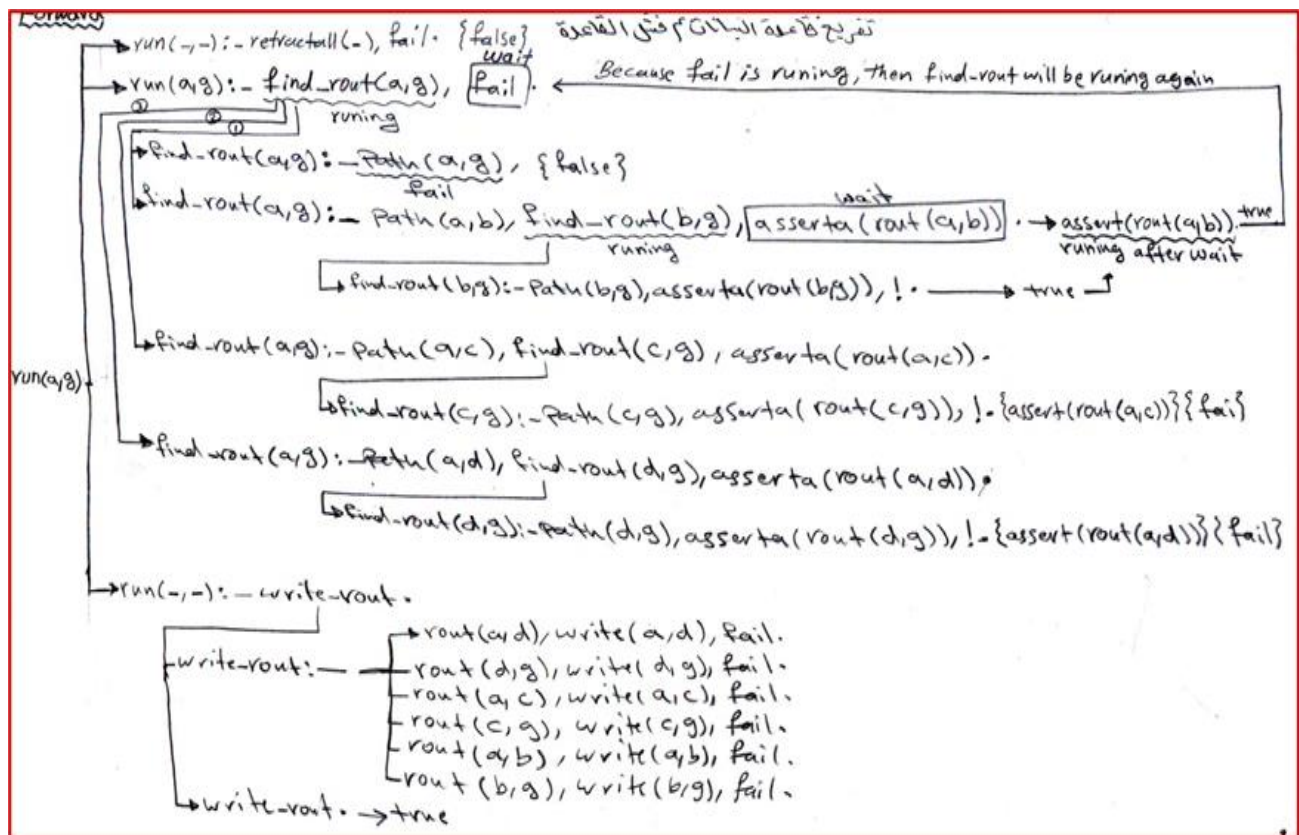 Forward
run(-,-):- retractall(-), fail. {false} تفريغ قاعدة البيانات ثم فشل القاعدة
wait
run(a,g):- find_rout(a,g), fail. Because fail is runing, then find-rout will be runing again
③ ② ① runing
find_rout(a,g):- Path(a,g), {false}
fail wait
find_rout(a,g):- Path(a,b), find_rout(b,g), asserta(rout(a,b)). assert(rout(a,b)). true
runing runing after wait
find-rout(b,g):- Path(b,g), asserta(rout(b,g)), !. true
find-rout(a,g):- Path(a,c), find_rout(c,g), asserta(rout(a,c)).
run(a,g)
find-rout(c,g):- Path(c,g), asserta(rout(c,g)), !. {assert(rout(a,c))}{fail}
find-rout(a,g):- Path(a,d), find_rout(d,g), asserta(rout(a,d)).
find-rout(d,g):- path(d,g), asserta(rout(d,g)), !. {assert(rout(a,d))}{fail}
run(-,-):- write-rout.
rout(a,d), write(a,d), fail.
write-rout:- rout(d,g), write(d,g), fail.
rout(a,c), write(a,c), fail.
rout(c,g), write(c,g), fail.
rout(a,b), write(a,b), fail.
rout(b,g), write(b,g), fail.
write-rout. → true